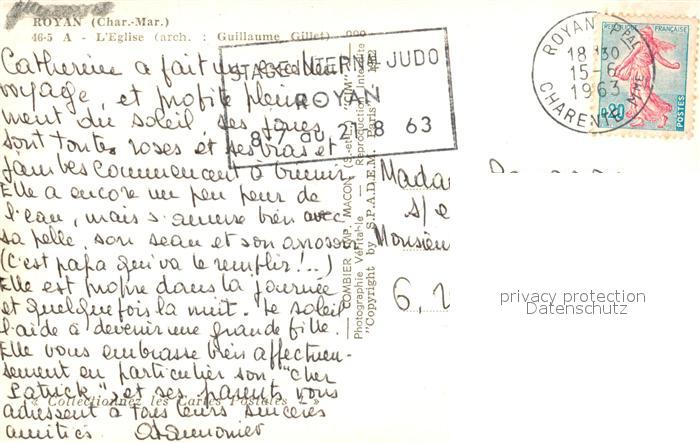 ROYAN (Char.-Mar.)
46-5 A - L'Eglise (arch. : Guillaume Gillet)
Catherine a fait un excellent
voyage, et profite pleine-
ment du soleil, ses joues
sont toutes roses et ses bras et
jambes commencent à brunir.
Elle a encore un peu peur de
l'eau, mais s'amuse bien avec
sa pelle, son seau et son arrosoir
(C'est papa qui va le remplir!...)
Elle est propre dans la journée
et quelquefois la nuit. Le soleil
l'aide à devenir une grande fille.
Elle vous embrasse bien affectueu-
sement en particulier son "cher
Patrick", et ses parents vous
adressent à tous leurs sincères
amitiés.
« Collectionnez les Cartes Postales »
STAGE INTERNAL JUDO
ROYAN
8-7 au 21-8 63
COMBIER IMP. MACON (S.-et-L.) "CIM"
Photographie Véritable - Reproduction Interdite
"Copyright by S.P.A.D.E.M. Paris"
ROYAN PPAL
18 H30
15-6
1963
CHARENTE MME
REPUBLIQUE FRANÇAISE
0,20
POSTES
Mada
s/c
Monsieu
6,
privacy protection
Datenschutz